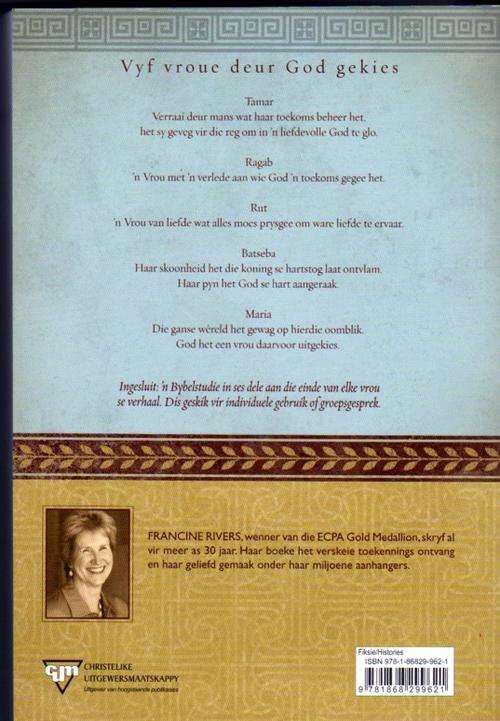 Vyf vroue deur God gekies
Tamar
Verraai deur mans wat haar toekoms beheer het,
het sy geveg vir die reg om in 'n liefdevolle God te glo.
Ragab
'n Vrou met 'n verlede aan wie God 'n toekoms gegee het.
Rut
'n Vrou van liefde wat alles moes prysgee om ware liefde te ervaar.
Batseba
Haar skoonheid het die koning se hartstog laat ontvlam.
Haar pyn het God se hart aangeraak.
Maria
Die ganse wêreld het gewag op hierdie oomblik.
God het een vrou daarvoor uitgekies.
Ingesluit: 'n Bybelstudie in ses dele aan die einde van elke vrou
se verhaal. Dis geskik vir individuele gebruik of groepsgesprek.
FRANCINE RIVERS, wenner van die ECPA Gold Medallion, skryf al
vir meer as 30 jaar. Haar boeke het verskeie toekennings ontvang
en haar geliefd gemaak onder haar miljoene aanhangers.
cum
CHRISTELIKE
UITGEWERSMAATSKAPPY
Uitgewer van hoogstaande publikasies
Fiksie/Histories
ISBN 978-1-86829-962-1
9 781868 299621